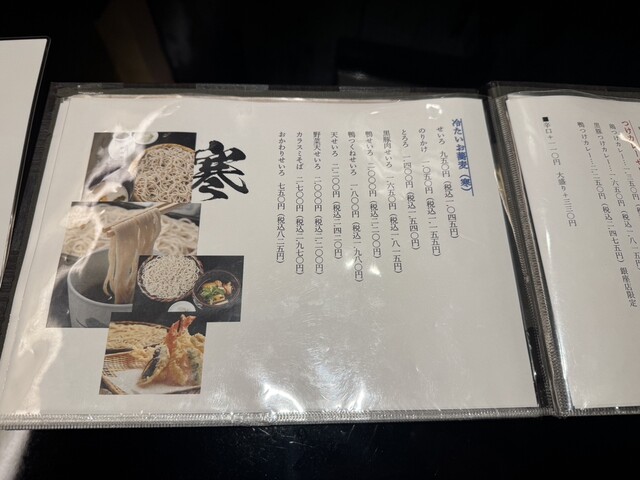 冷たいお蕎麦(寒)
せいろ 九五〇円(税込一〇四五円)
のりかけ 一〇五〇円(税込一一五五円)
とろろ 一四〇〇円(税込一五四〇円)
黒豚肉せいろ 一六五〇円(税込一八一五円)
鴨せいろ 二〇〇〇円(税込二二〇〇円)
鴨つくねせいろ 一八〇〇円(税込一九八〇円)
天せいろ 二二〇〇円(税込二四二〇円)
野菜天せいろ 二〇〇〇円(税込二二〇〇円)
カラスミそば 二七〇〇円(税込二九七〇円)
おかわりせいろ 七五〇円(税込八二五円)
寒
銀座店限定
■辛口+一一〇円 大盛り+三三〇円